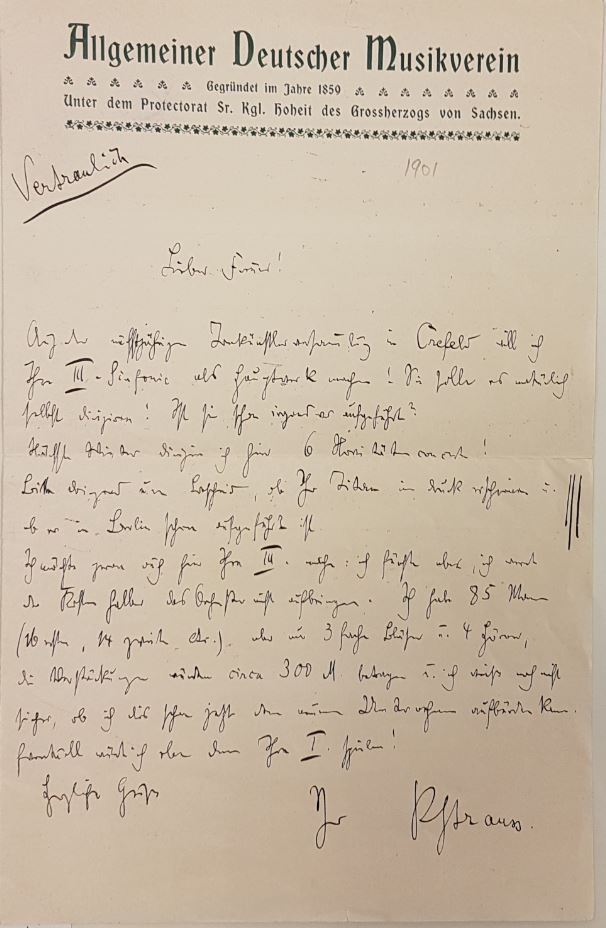 Allgemeiner Deutscher Musikverein
Gegründet im Jahre 1859
Unter dem Protectorat Sr. Kgl. Hoheit des Grossherzogs von Sachsen.
Vertraulich
1901
Lieber Freund!
Auf der nächstjährigen Tonkünstlerversammlung in Crefeld will ich
Ihre III. Sinfonie als Hauptwerk machen! Sie sollen es natürlich
selbst dirigiren! Ist sie schon irgendwo aufgeführt?
Nächsten Winter dirigire ich hier 6 Novitätenconcerte!
Bitte dringend um Bescheid, ob Ihr Titan im Druck erschienen u.
ob er in Berlin schon aufgeführt ist.
Ich möchte gerne auch hier Ihre III. machen: ich fürchte aber, ich werde
der Kosten halber das Orchester nicht aufbringen. Ich habe 85 Mann
(16 erste, 14 zweite etc.) aber nur 3fache Bläser u. 4 Hörner,
die Verstärkungen würden circa 300 M. betragen u. ich weiß noch nicht
sicher, ob ich dies schon jetzt dem neuen Unternehmen aufbürden kann.
Eventuell würde ich eben dann Ihre I. spielen!
Herzliche Grüße
Ihr RStrauss.